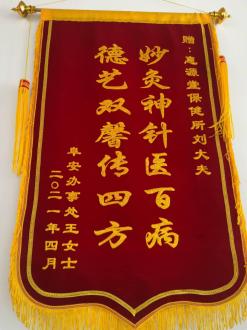 赠：惠源堂保健所刘大夫
妙灸神针医百病
德艺双馨传四方
阜安办事处王女士
二〇二一年四月